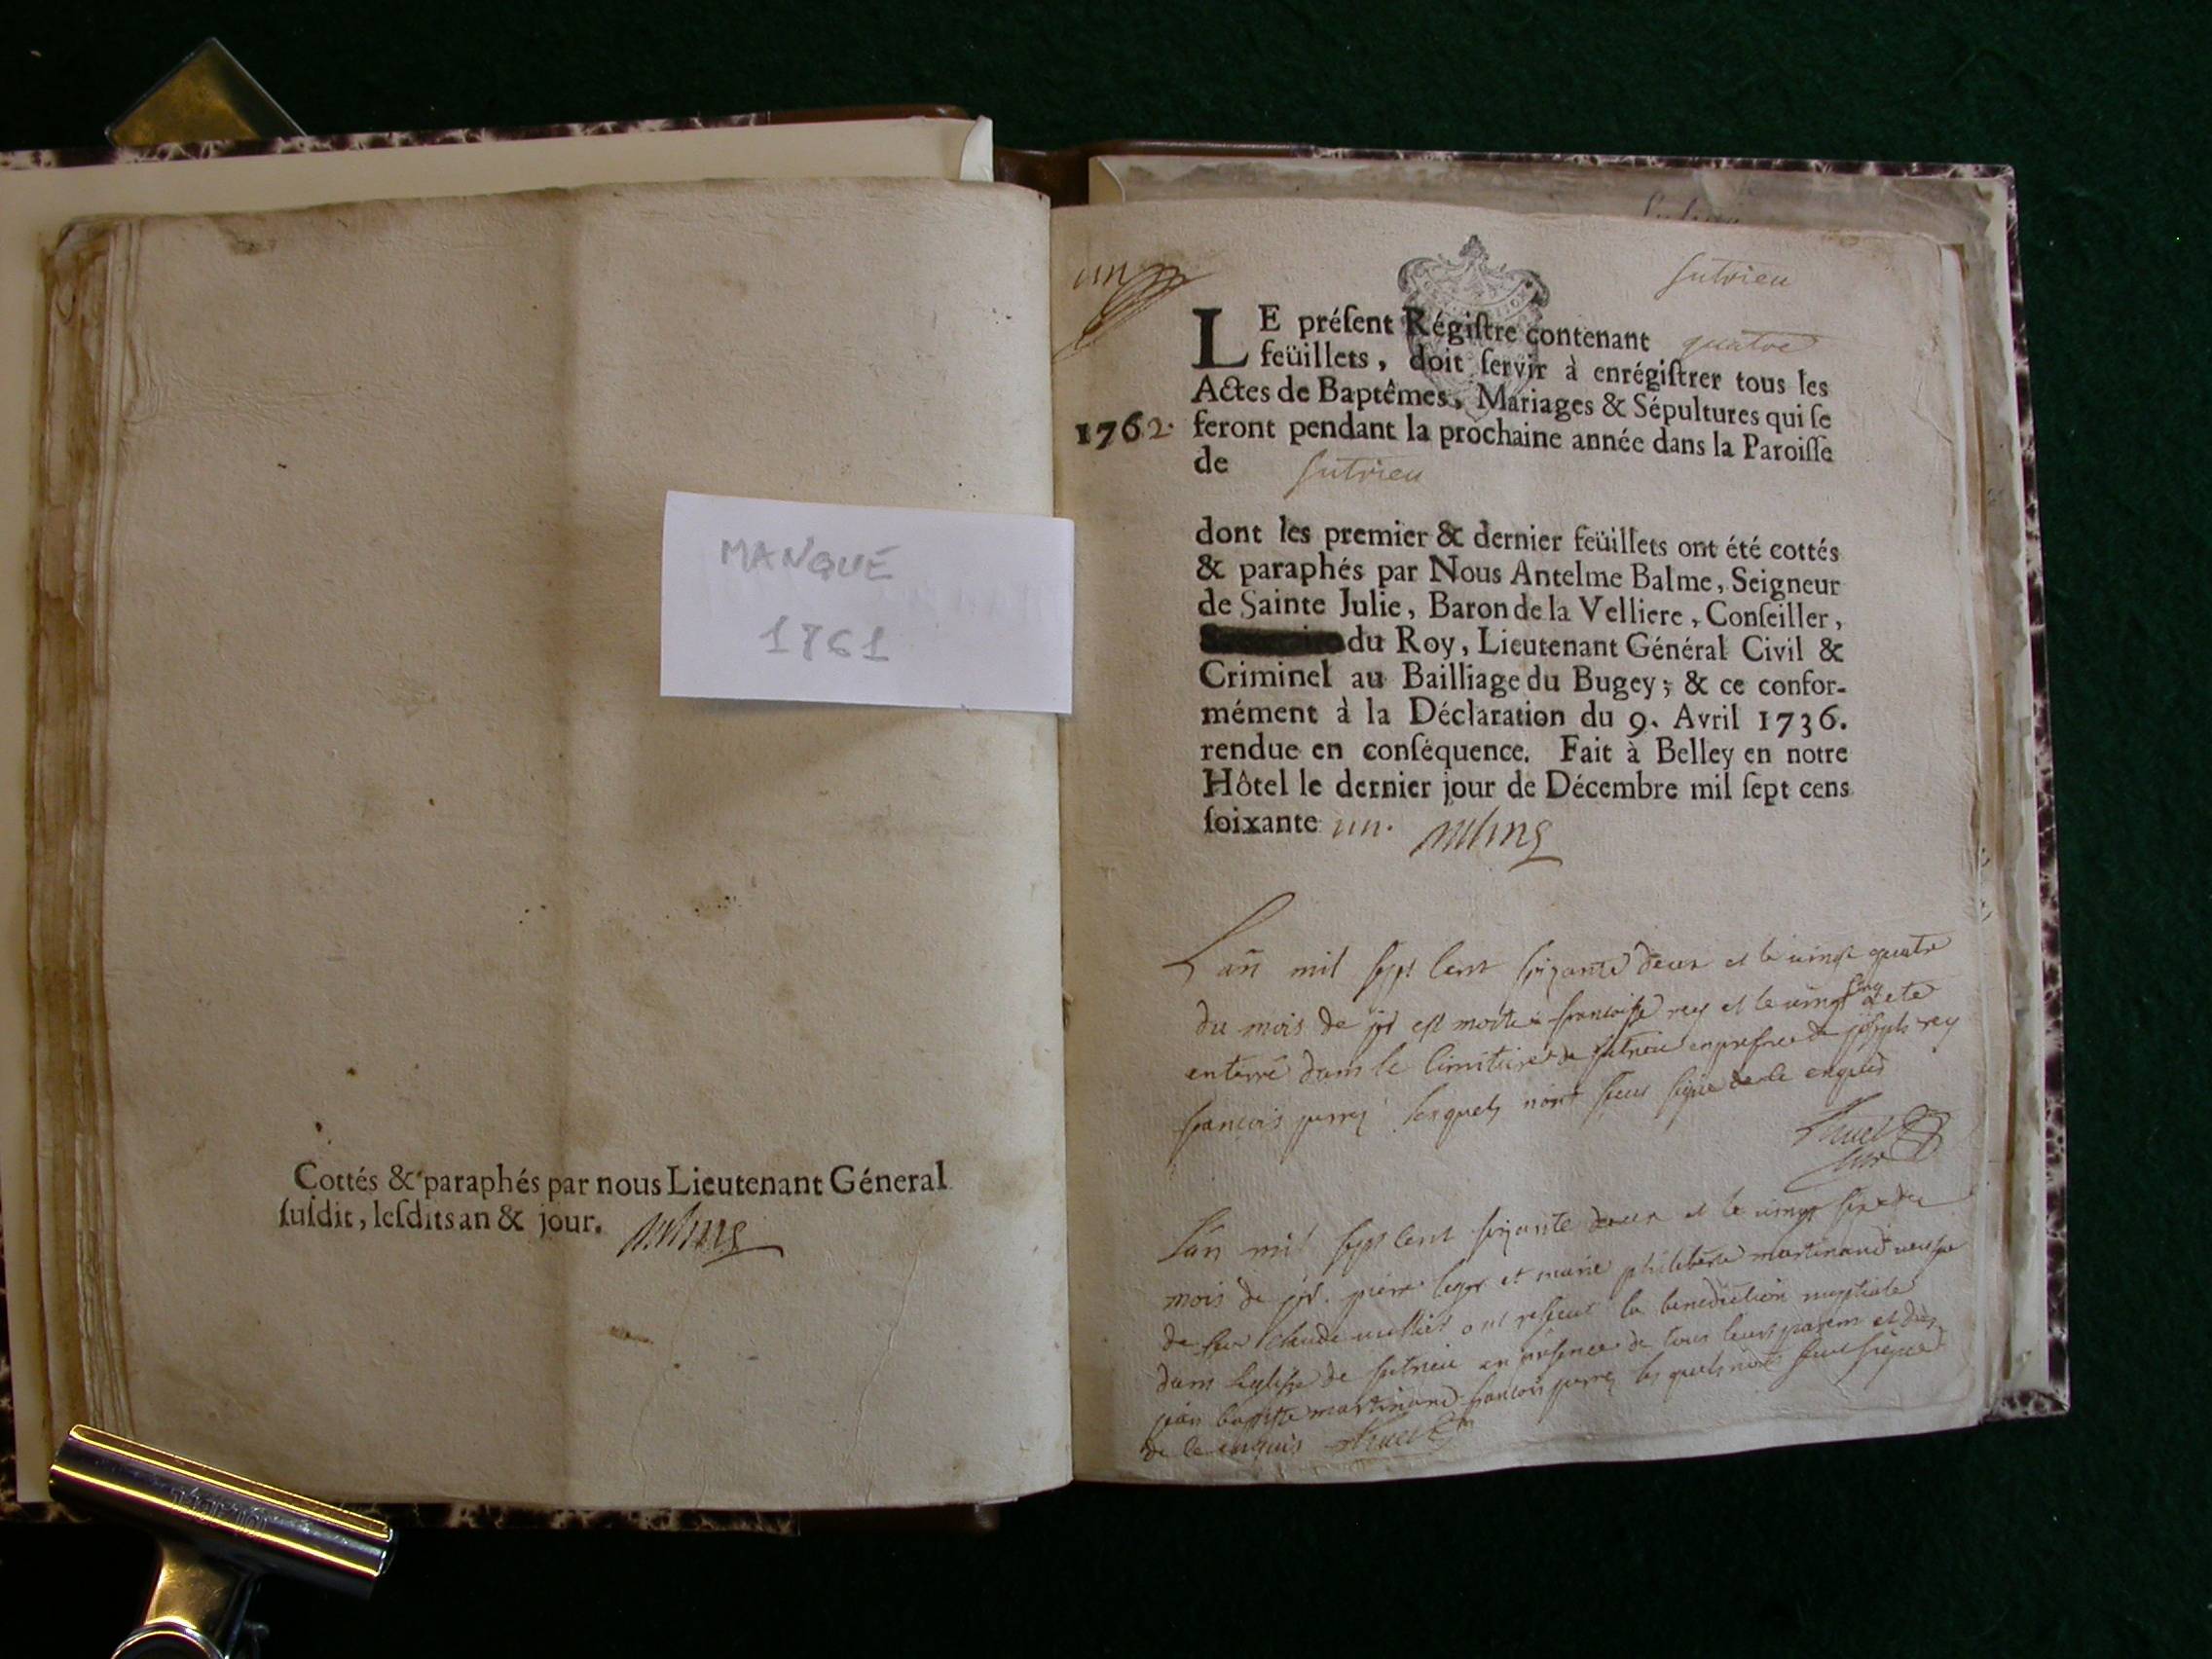 MANQUE
1761
Cottés & paraphés par nous Lieutenant Géneral
ſuſdit, leſdits an & jour.
un
ſutrieu
LE préſent Régiſtre contenant quatre
feüillets, doit ſervir à enrégiſtrer tous les
Actes de Baptêmes, Mariages & Sépultures qui ſe
1762. feront pendant la prochaine année dans la Paroiſſe
de ſutrieu
dont les premier & dernier feüillets ont été cottés
& paraphés par Nous Antelme Balme, Seigneur
de Sainte Julie, Baron de la Velliere, Conſeiller,
du Roy, Lieutenant Général Civil &
Criminel au Bailliage du Bugey; & ce confor-
mément à la Déclaration du 9. Avril 1736.
rendue en conſéquence. Fait à Belley en notre
Hôtel le dernier jour de Décembre mil ſept cens
ſoixante un.
Lan mil sept cent soixante deux et le vingt quatre
du mois de est morte francoise rey et le vingt cinq a ete
enterré dans le cimitiere de sutrieu en presence de joseph rey
francois lesquels n'ont sceu signe de ce enquis
Lan mil sept cent soixante deux et le vingt sept du
mois de pierre et marie philiberte martinand veufve
de feu claude ont resceut la benediction nuptiale
dans leglise de sutrieu en presence de tous leurs parens et de
jean baptiste martinand francois lesquels n'ont sceut signe
de ce enquis